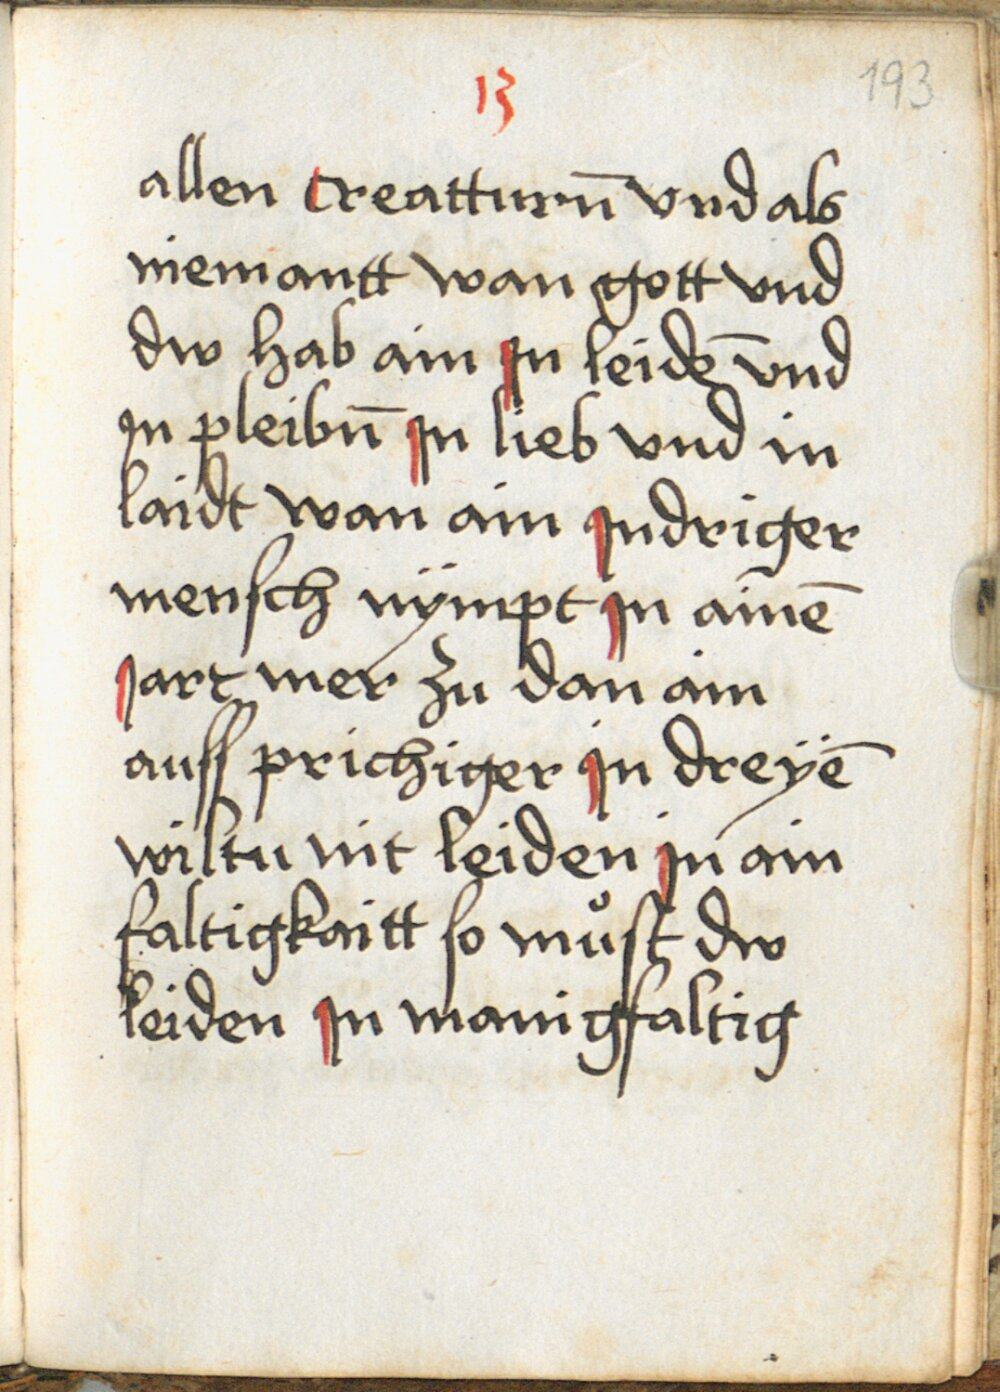 13
193
allen Creatturn̄ vnd als
niemantt wan gott vnd
dw hab ain In leidē vnd
In pleibn̄ In lieb vnd in
laidt wan ain Indriger
mensch nÿmpt In ainē
Jart mer zu dan ain
auss prichiger in dreÿē
wiltu nit leiden in ain
faltigkaitt so můst dw
leiden In manigfaltig